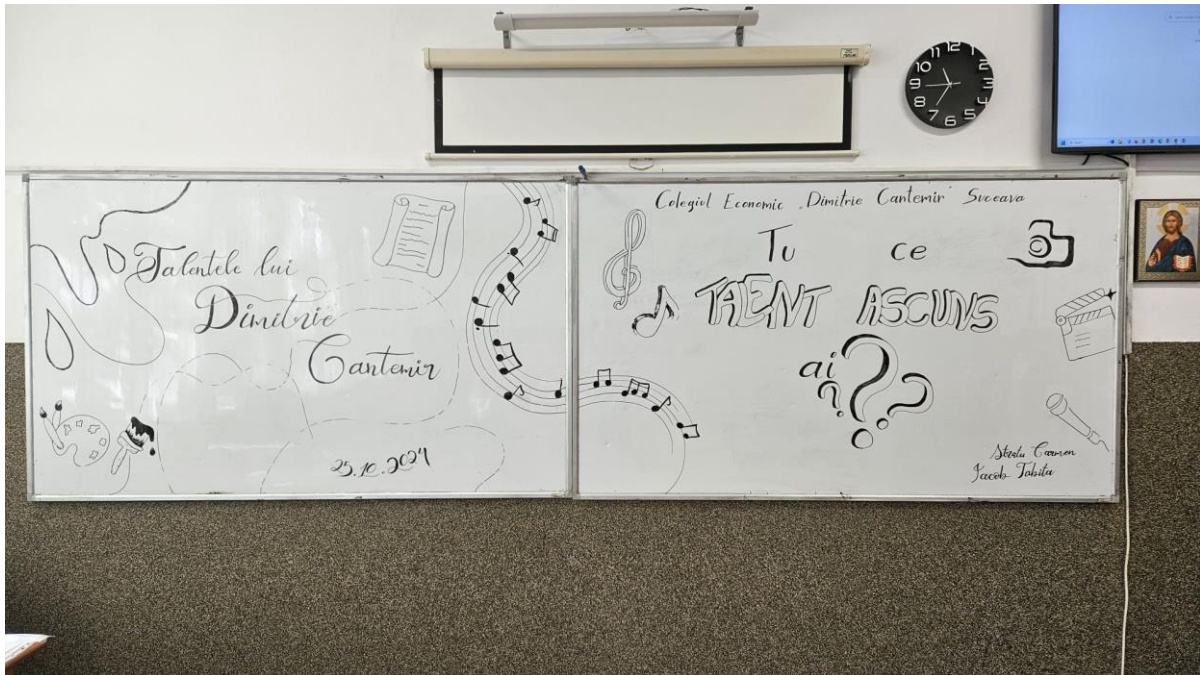 Talentele lui
Dimitrie
Cantemir
25.10.2024
Colegiul Economic „Dimitrie Cantemir” Suceava
Tu ce
TALENT ASCUNS
ai ???
Iacob Tabita
11 12 1 2 3 4 5 6 7 8 9 10